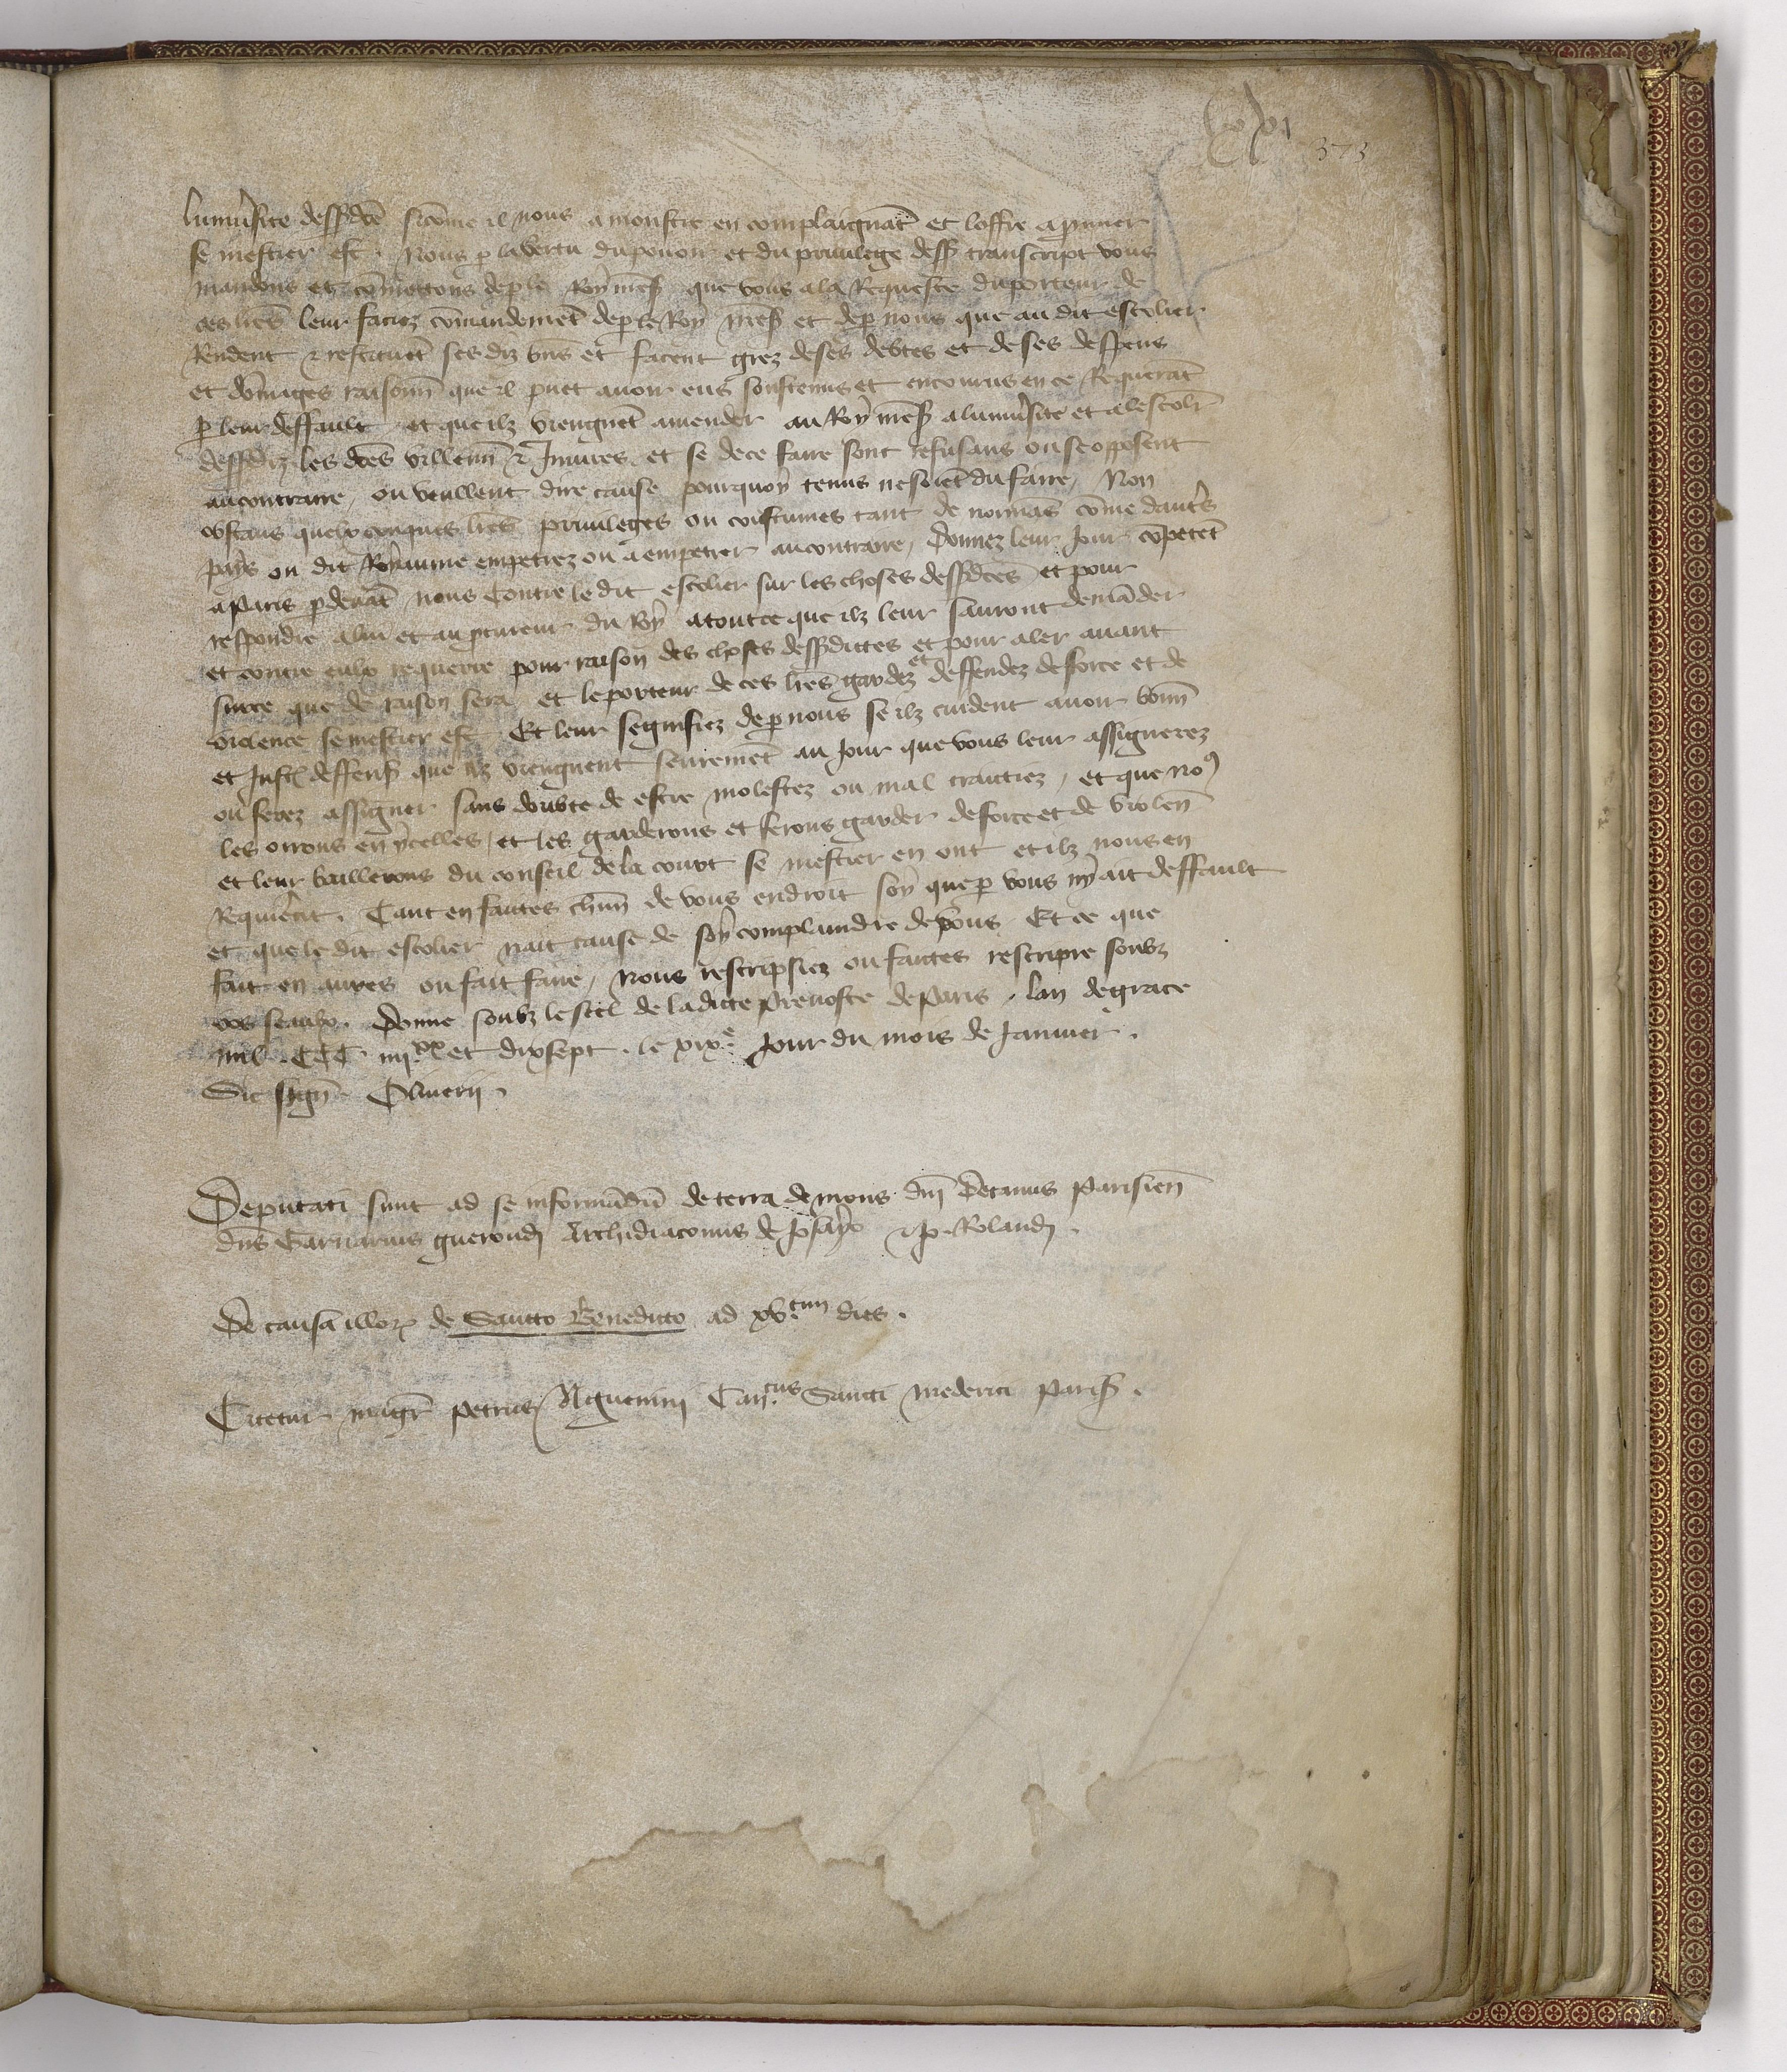 373
lun̄isite dessꝰdcē sicōme il nous a monstre en complaignāt et loffre a prouuer
se mestier est . Nous ꝑ la vertu du pouoir et du priuilege dessꝰ transcript vous
mandons et cōmettons de ꝑ le Roy nr̄es que vous a la Requeste du porteur de
ces lr̄es leur faciez cōmandemēt de ꝑ le Roy nr̄es et de ꝑ nous que au dit escolier
Rendent ⁊ restituēt ses diz bn̄s et facent grez de ses debtes et de ses despens
et dōmages raisonn̄ que il puet auoir eus soustenus et encourus en ce Requerāt
ꝑ leur deffault et que ilz viengnēt amender au Roy nr̄es a luniu'site et a lescoli'
dessꝰdiz les dcēs villenn̄ ⁊ Iniures et se de ce faire sont refusans ou se opposent
au contraire, ou veullent dire cause pourquoy tenus ne soiēt du faire, Non
obstans quelxconques lr̄es priuileges ou coustumes tant de normād cōme daut's
pays ou dit Royaume empetrez ou a empetrer au contraire, Donnez leur Jour cōpetēt
a Paris ꝑ deuāt nous Contre le dit escolier sur les choses dessꝰdcēs et pour
respondre a lui et au ꝓcureur du Roy a tout ce que ilz leur sauront demāder
et contre eulx requerre pour raison des choses dessꝰdittes et pour aler auant
sur ce que de raison sera et le porteur de ces lr̄es gardez et deffendez de force et de
violence se mestier est Et leur segnifiez de ꝑ nous se ilz cuident auoir bonn̄
et Just̄ deffens̄ que ilz viengnent seurement au Jour que vous leur assignerez
ou ferez assigner sans doubte de estre molestez ou mal traittiez, et que noꝰ
les orrons en ycelles, et les garderons et ferons garder de force et de violen̄
et leur baillerons du conseil de la court se mestier en ont et ilz nous en
Requier̄ent . Tant en faites chūn de vous endroit soy que ꝑ vous ny ait deffault
et que le dit escolier nait cause de soy complaindre de vous Et ce que
fait en aures ou fait faire, Nous rescripsiez ou faites rescripre soubz
vos seaulx . Donne soubz le scel de la ditte Preuoste de Paris . lan de grace
mil . CCC iiii.xx et dixsept . le xixe. Jour du mois de Januier .
Sic sign̄ . Oliuerij .
Deputati sunt ad se informādū de terra de mons dn̄i Decanus Parisien̄
dn̄s Camerarius Archidiaconus de Josayo ⁊ Jo. Rolandi .
De causa illoꝝ de Sancto Benedicto ad xv.cim dies .
Citetur magr̄ Petrus Can.cus Sancti mederici Paris̄ .